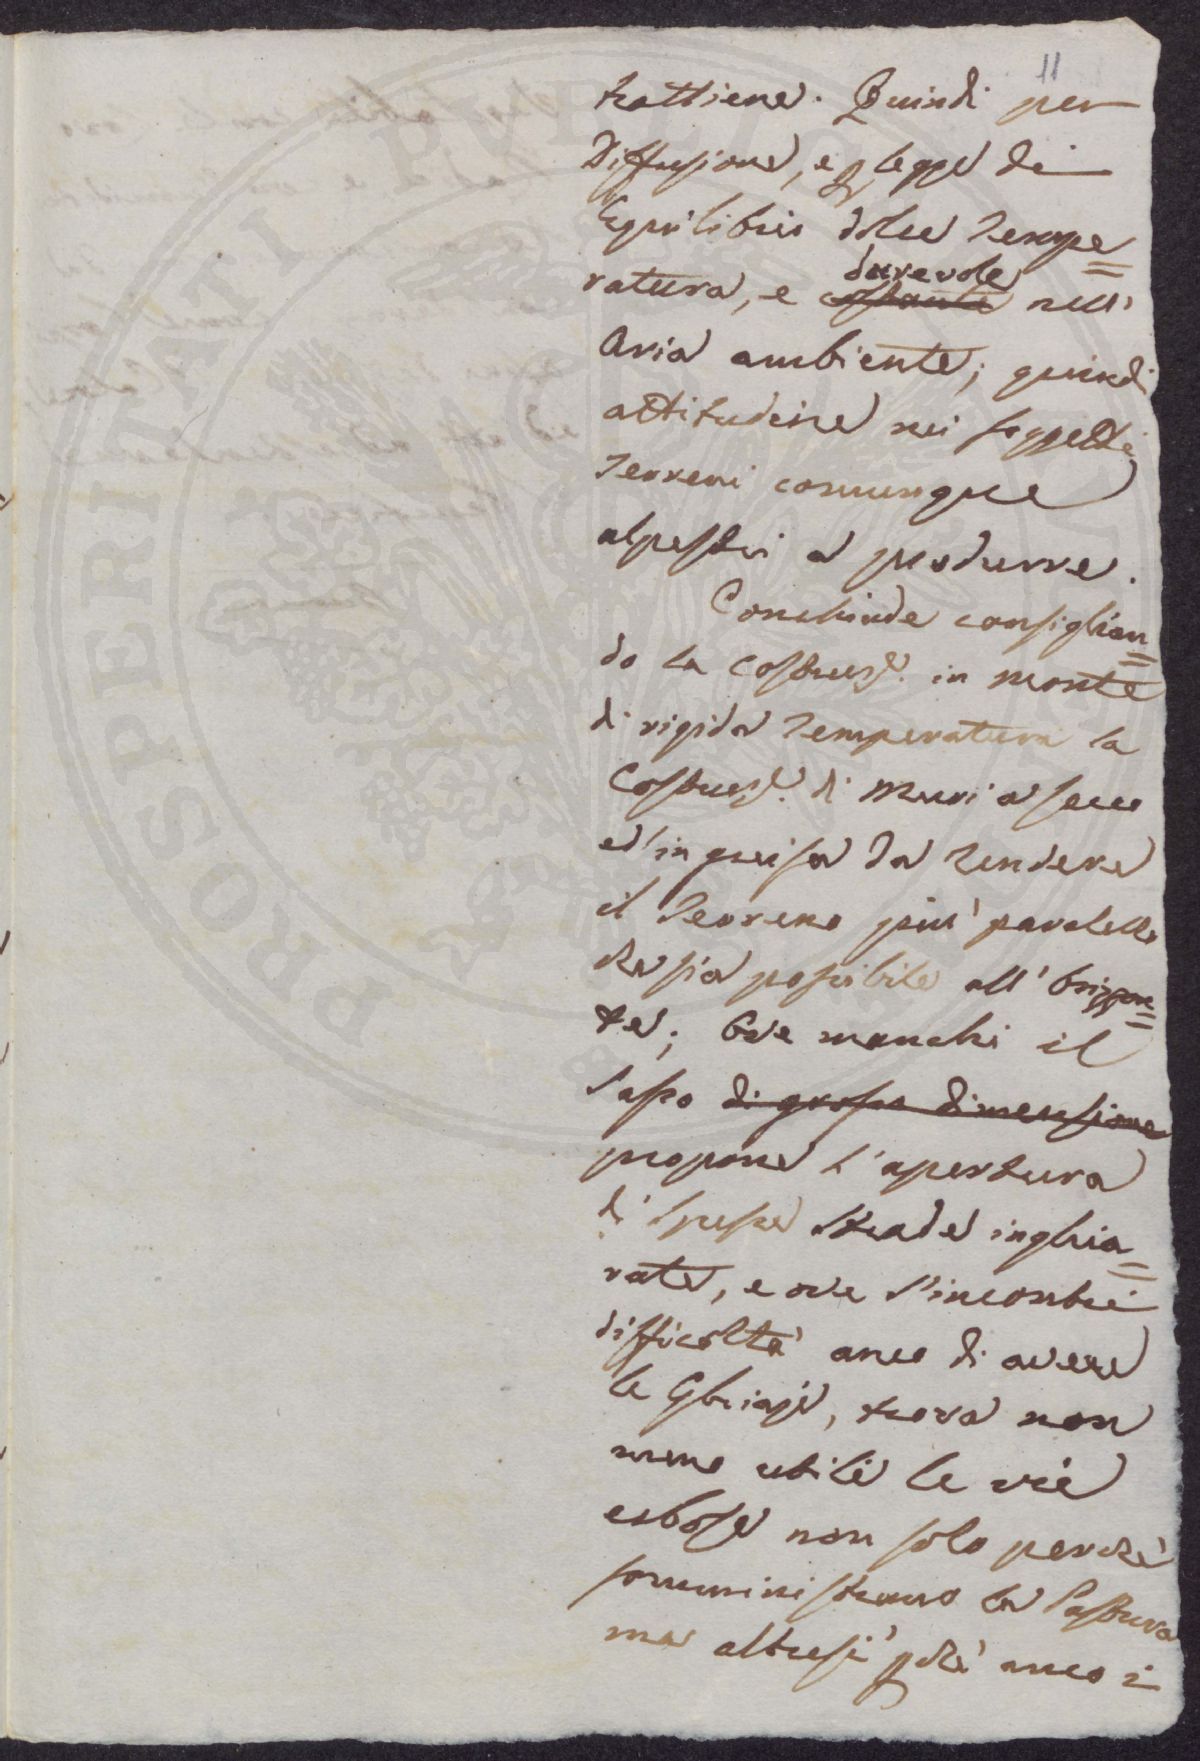 11
trattiene. Quindi per
Diffusione, e p legge di
Equilibrio dolce Tempe=
durevole
ratura, e costante nell'
Aria ambiente; quindi
attitudine nei soggetti
Terreni comunque
alpestri a produrre.
Conchiude consiglian=
do la Costruz.e in monte
di rigida Temperatura la
Costruz.e di Muri a secco
ed in guisa da rendere
il Terreno più paralello
che sia possibile all'Orizzon=
te; Ove manchi il
Sasso di grossa dimensione
propone l'apertura
di spesse Strade inghia=
rate, e ove s'incontri
difficoltà anco di avere
le Ghiaje, trova non
meno utili le vie
erbose non solo perchè
somministrano la Pastura
ma altresì pchè anco i
PROSPERITATI PVBLICAE